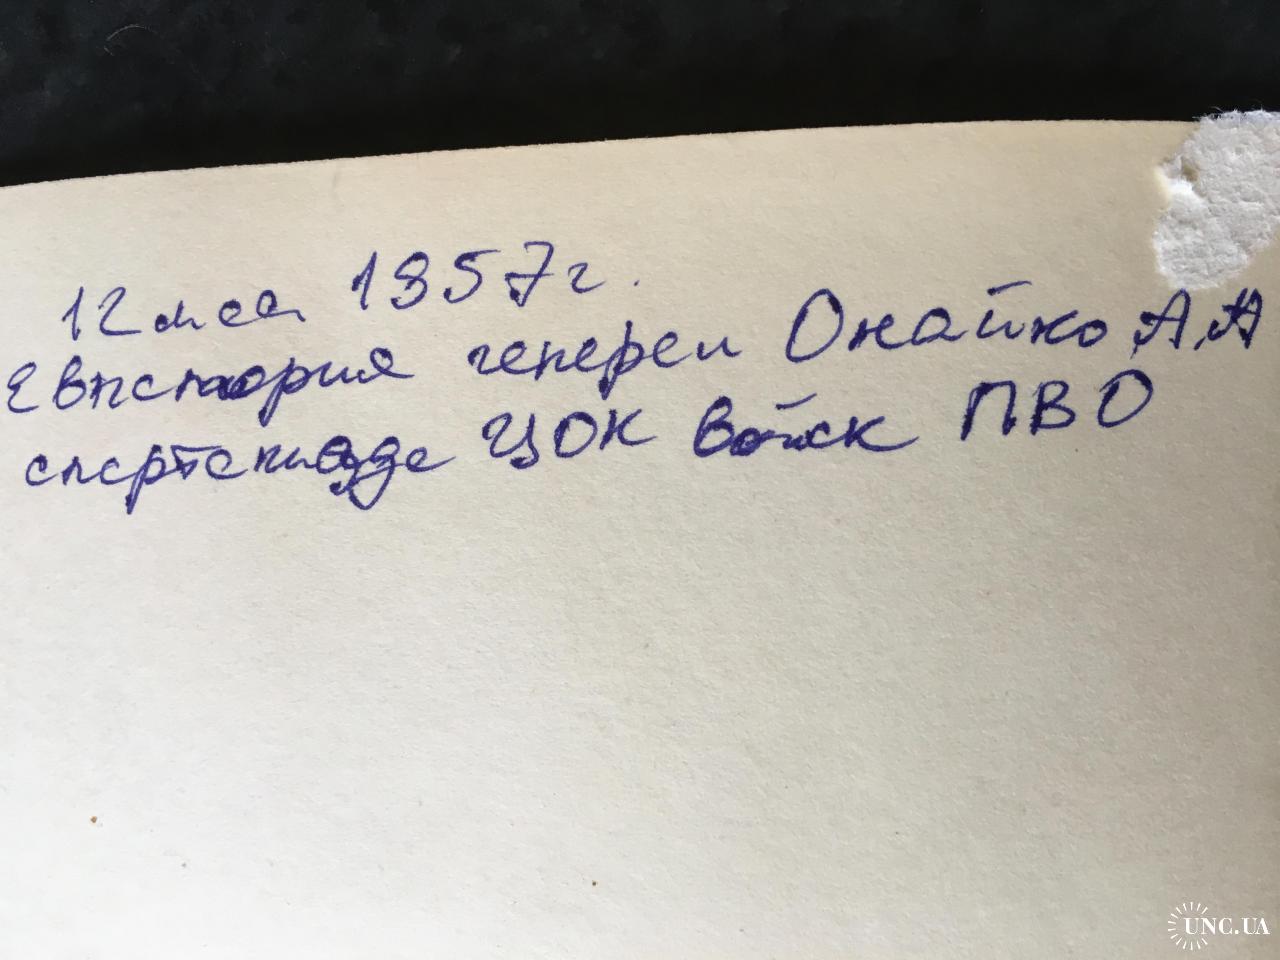 12 мая 1957 г.
Евпатория генерал Онайко А.А
спартакиаде ЦОК войск ПВО
UNC.UA